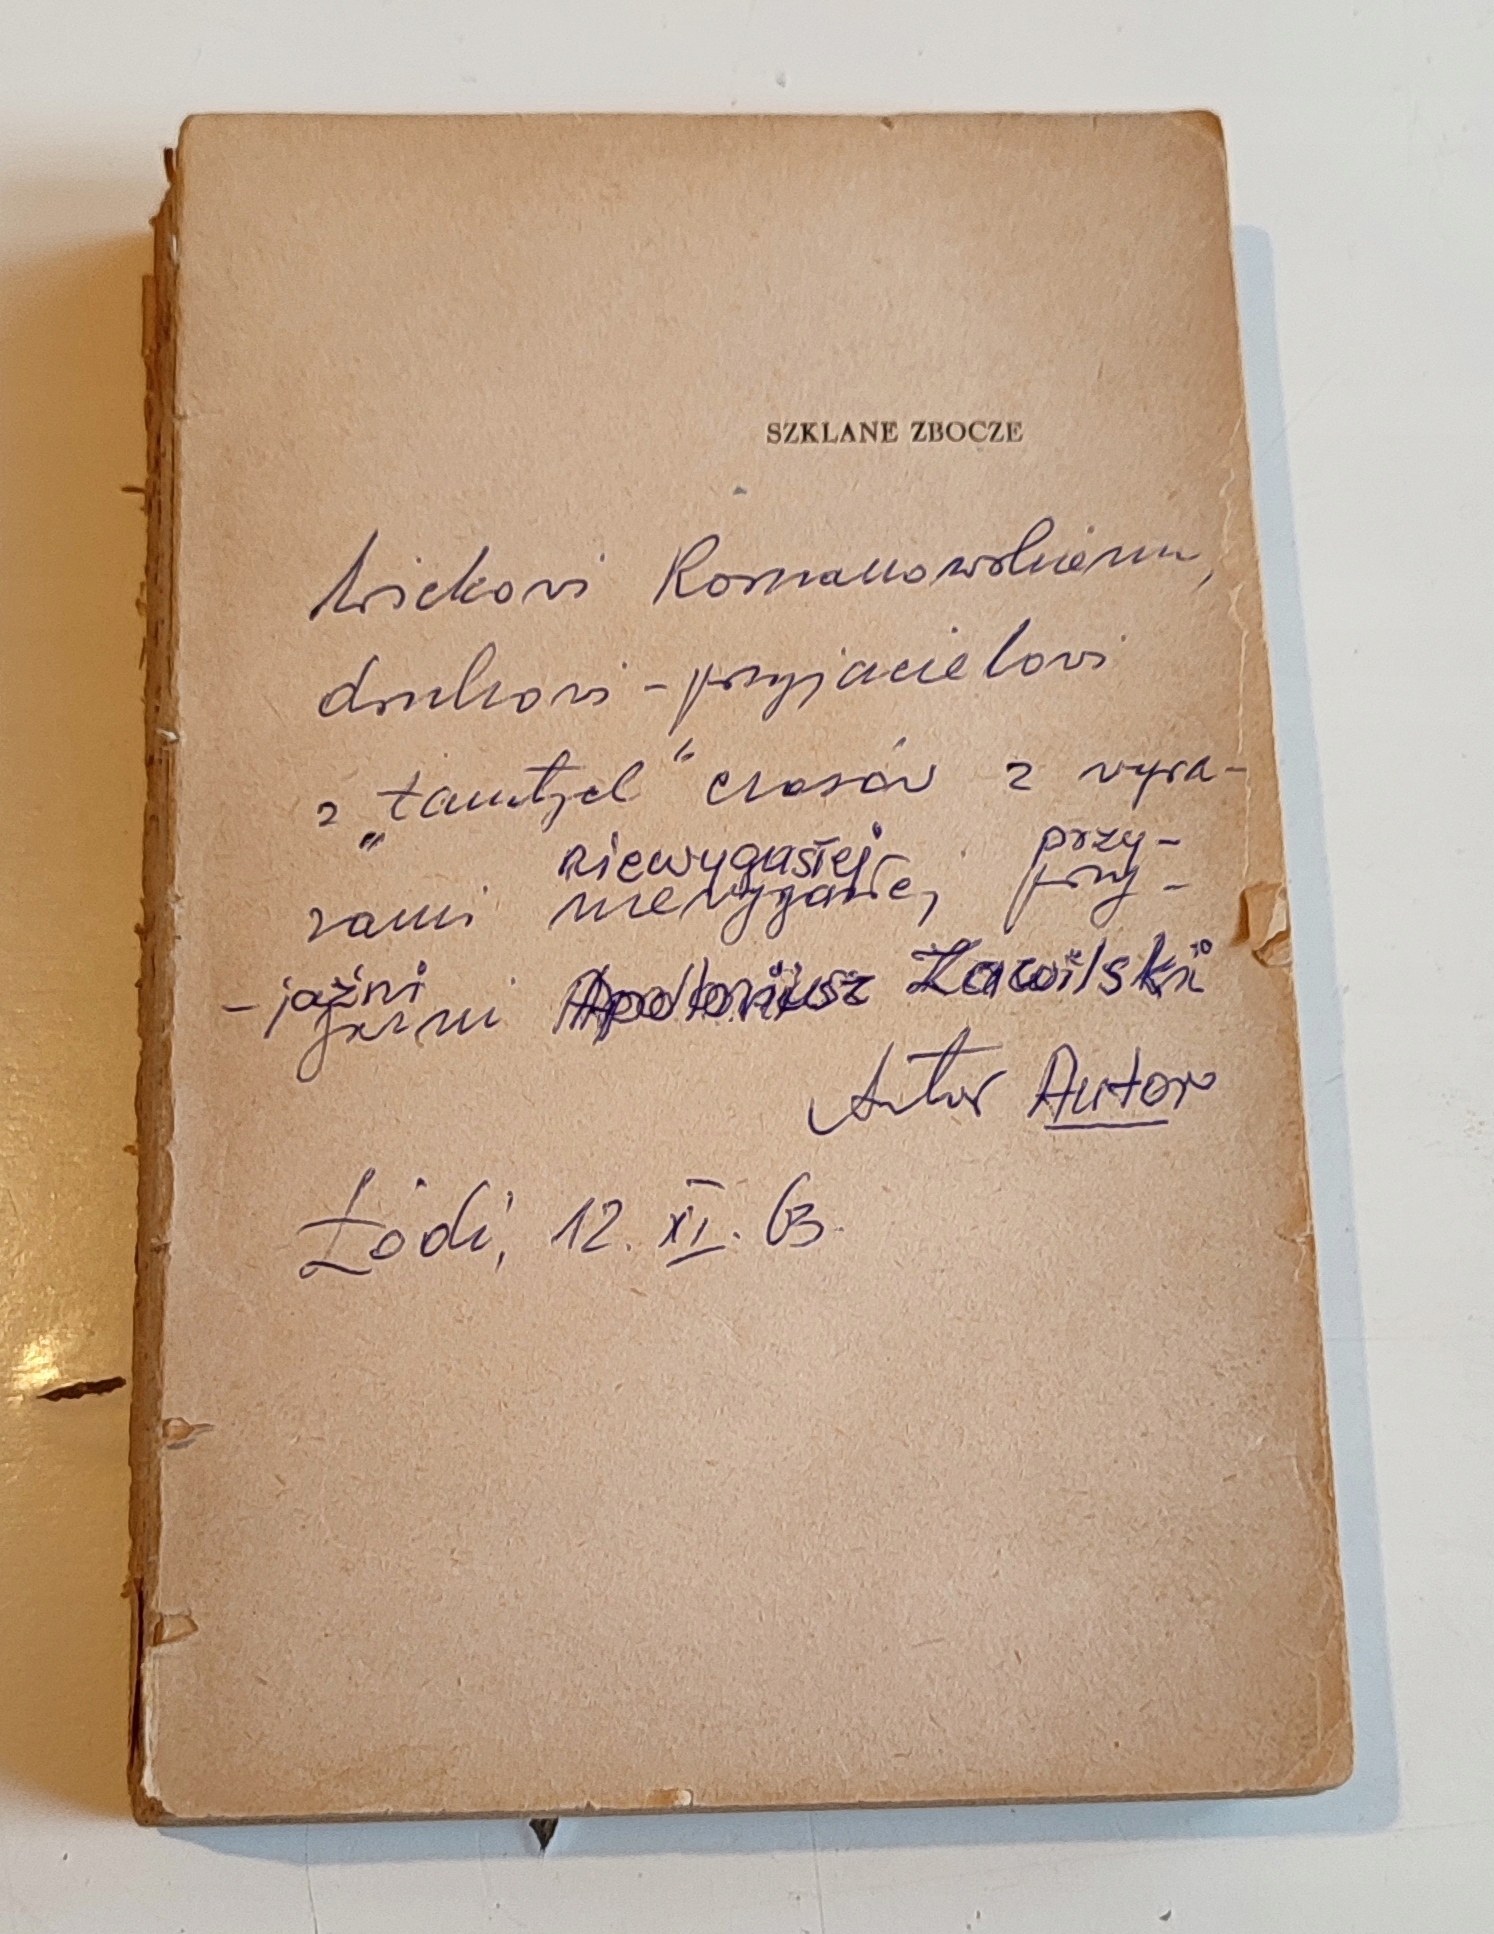 SZKLANE ZBOCZE
Wickowi Romanowskiemu,
druhowi - przyjacielowi
z „tamtych“ czasów z wyra-
niewygasłej przy-
zami niewygasłej przy-
- jaźni
jaźni Apoloniusz Zawilski
Autor Autor
Łódź, 12. XI. 63.